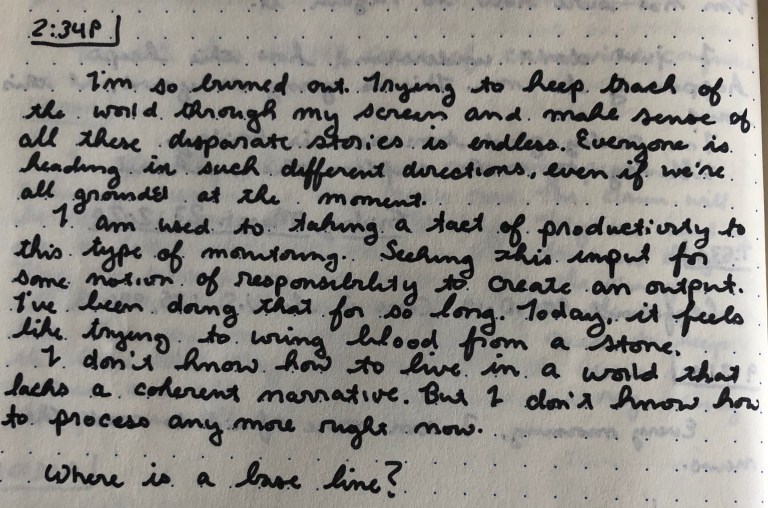 2:34P
I'm so burned out. Trying to keep track of
the world through my screen and make sense of
all these disparate stories is endless. Everyone is
heading in such different directions, even if we're
all grounded at the moment.
I am used to taking a tact of productivity to
this type of monitoring. Seeking this input for
some notion of responsibility to create an output.
I've been doing that for so long. Today, it feels
like trying to wring blood from a stone.
I don't know how to live in a world that
lacks a coherent narrative. But I don't know how
to process any more right now.
Where is a base line?